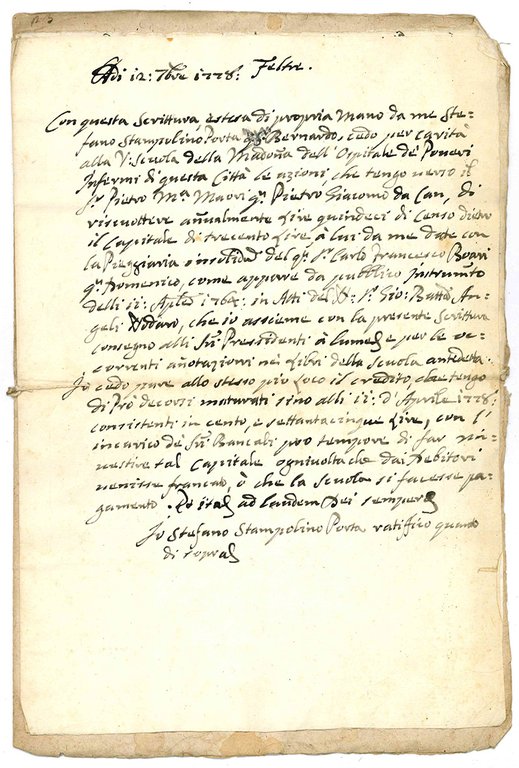 Adi 12: 7bre 1778: Feltre.
Con questa Scrittura estesa di propria mano da me Ste-
fano Stampolino Porta qm Bernardo, cedo per carità
alla V: Scuola della Madoña dell' Ospitale de Poveri
Infermi di questa Città le azioni che tengo verso il
Sr Pietro Ma Maori qm Pietro Giacomo da Can, di
riscuottere añualmente Lire quindeci di Censo dietro
il Capitale di trecento Lire à lui da me date con
la Pieggiaria insolidū del qm Sr Carlo Francesco Boari
qm Domenico, come appare da pubblico Instrumto
delli 11: Aple 1767: in Atti del Sr Gio: Batta An-
geli Nodaro, che io assieme con la presente Scrittura
consegno alli Sri Pressidenti à lume e per le oc-
correnti añotazioni nei Libri della Scuola antedetta.
Io cedo pure allo stesso pio Loco il credito che tengo
di Prò decorsi maturati sino alli 11: d'Aprile 1778:
consistenti in cento, e settantacinque Lire, con l'
incarico de Sri Bancali pro tempore di far rin-
vestire tal Capitale ogni volta che dai Debitori
venisse francato, ò che la scuola si facesse pa-
gamento. ad laudem Dei semper
Io Stefano Stampolino Porta ratiffico quanto
di sopra